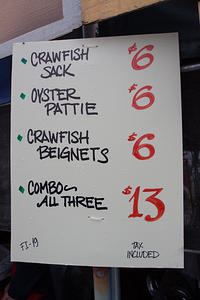 CRAWFISH $6
SACK
OYSTER $6
PATTIE
CRAWFISH $6
BEIGNETS
COMBO~ $13
ALL THREE
F1-19 TAX
INCLUDED